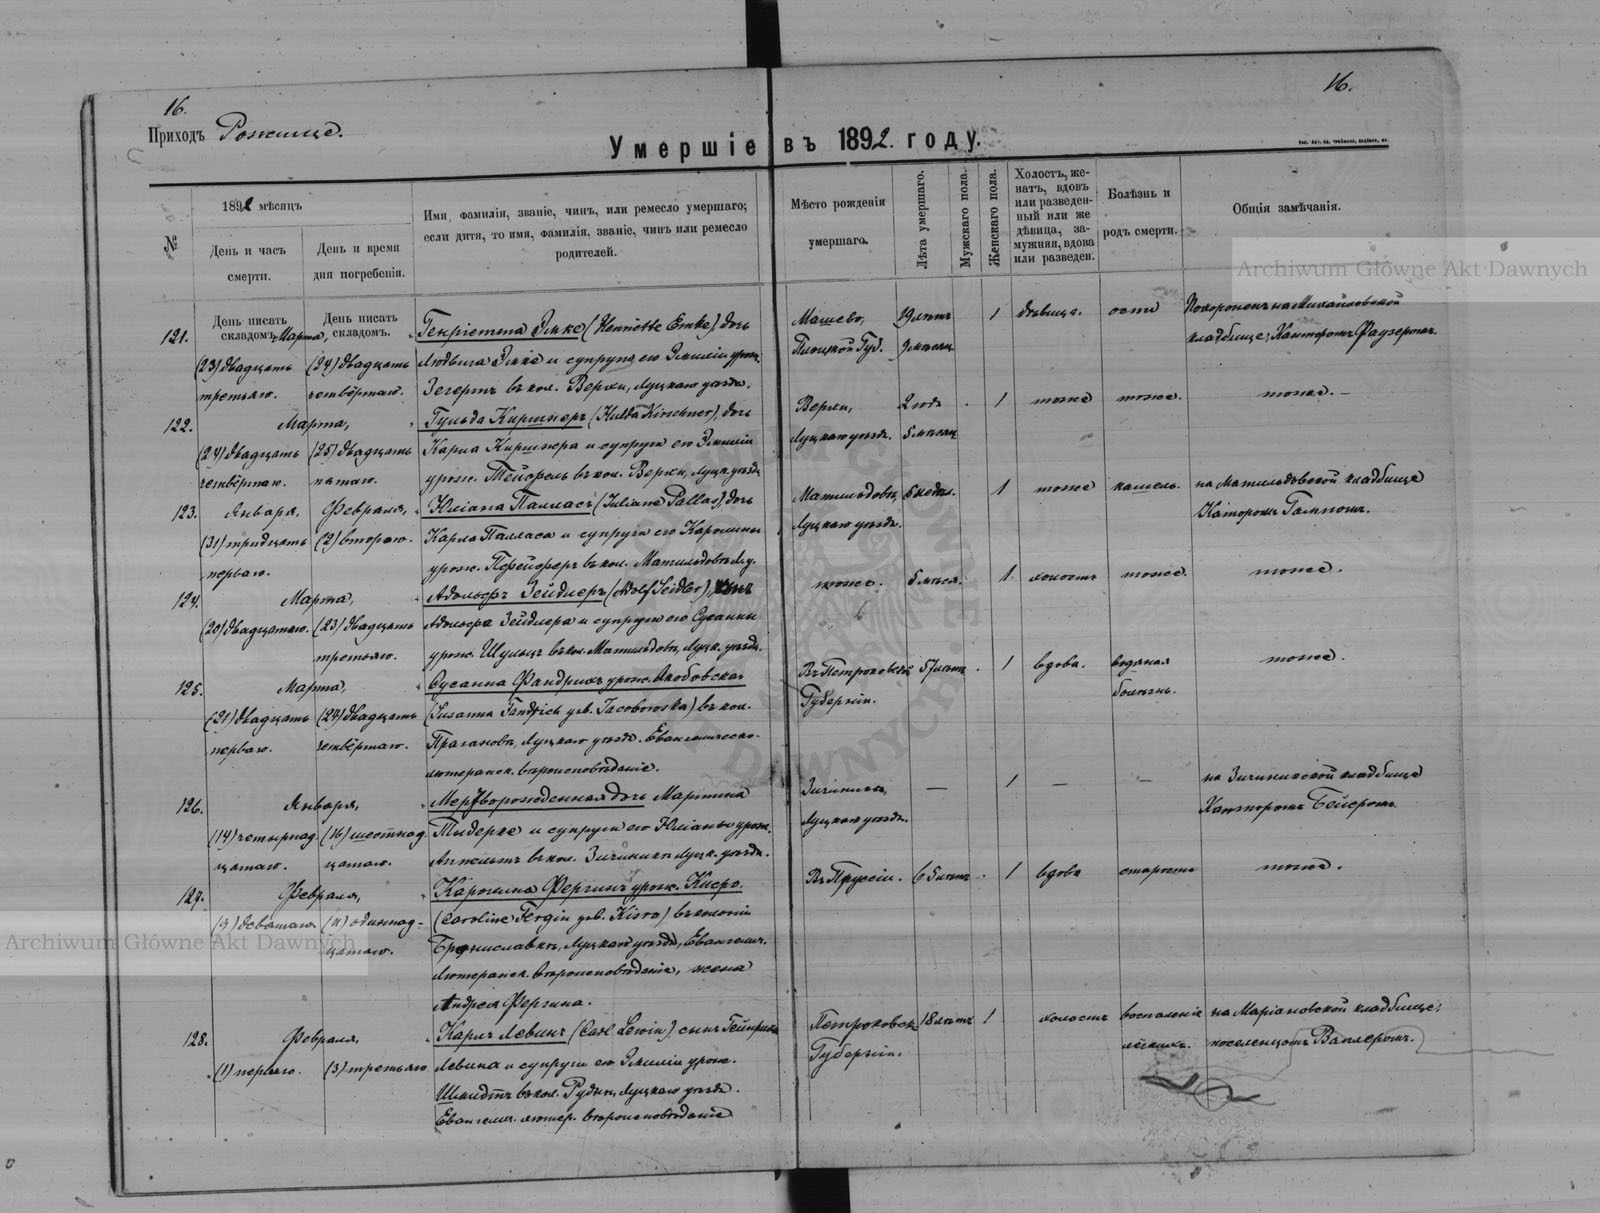 16.
16.
Приходъ Рожище.
Умершіе въ 1892 году.
№
1892 мѣсяцъ
День и часъ смерти.
День и время дня погребенія.
Имя, фамилія, званіе, чинъ, или ремесло умершаго;
если дитя, то имя, фамилія, званіе, чинъ или ремесло
родителей.
Мѣсто рожденія
умершаго.
Лѣта умершаго.
Мужскаго пола.
Женскаго пола.
Холостъ, же-
натъ, вдовъ
или разведен-
ный или же
дѣвица, за-
мужняя, вдова
или разведен.
Болѣзнь и
родъ смерти.
Общія замѣчанія.
Archiwum Główne Akt Dawnych
День писать складомъ.
День писать складомъ.
121. Марта,
(23) двадцать третьяго.
(24) двадцать четвёртаго.
Генріетта Эмке (Henriette Emke) дочь
Людвига Эмке и супруги его Эмиліи урож.
Зегертъ въ кол. Верхи, Луцкаго уѣзда.
Машево,
Плоцкой Губ.
19 лѣтъ
9 мѣсяц
1
дѣвица.
оспа
Похороненъ на Михайловской
кладбище, Канторомъ Фаузеромъ.
122. Марта,
(24) двадцать четвёртаго.
(25) двадцать пятаго.
Гульда Киршнеръ (Hulda Kirschner), дочь
Карла Киршнера и супруги его Эмиліи
урож. Тейфель въ кол. Верхи, Луцк. уѣзда
Верхи,
Луцкаго уѣзда.
2 года
5 мѣсяц
1
тоже
тоже.
тоже.
123. Января,
Февраля,
(31) тридцать перваго.
(2) втораго.
Юліана Палласъ (Juliane Pallas), дочь
Карла Палласа и супруги его Каролины
урож. Пфейферъ въ кол. Матильдовъ Лу.
Матильдовъ,
Луцкаго уѣзда.
6 недѣл.
1
тоже
кашель.
на Матильдовской кладбище
Канторомъ
124. Марта,
(20) двадцатаго.
(23) двадцать третьяго.
Адольфъ Зейдлеръ (Adolf Seidler), сынъ
Адольфа Зейдлера и супруги его Сусанны
урож. Шульцъ въ кол. Матильдовъ, Луцк. уѣзда.
тоже.
5 мѣся.
1
холостъ
тоже.
тоже.
125. Марта,
(21) двадцать перваго.
(24) двадцать четвёртаго.
Сусанна Фандрихъ урож. Якобовска
(Susanna Fandrich geb. Jacobowska) въ кол.
Луцкаго уѣзда. Евангелическо-
лютеранск. вѣроисповѣданіе.
Въ Петроковской
Губерніи.
57 лѣтъ
1
вдова.
водяная
болѣзнь.
тоже.
126. Января,
(14) четырнад цатаго.
(16) шестнад цатаго.
Мертворожденная дочь Мартина
Тыдерке и супруги его Юліаны урож.
Аппельтъ въ кол. Зичиникъ Луцк. уѣзда.
Зичиники,
Луцкаго уѣзда.
—
1
—
—
на Зичиникской кладбище
Канторомъ Бейеромъ.
127. Февраля,
(9) девятаго
(11) одиннад=цатаго.
Каролина Фергинъ урож. Кисро.
(Caroline Fergin geb. Kisro) въ колоніи
Брониславкѣ, Луцкаго уѣзда, Евангелич.
Лютеранск. вѣроисповѣданіе, жена
Андрея Фергина.
Въ Пруссіи.
65 лѣтъ
1
вдова
старость
тоже.
Archiwum Główne Akt Dawnych
128. Февраля,
(1) перваго.
(3) третьяго
Карлъ Левинъ (Carl Lewin), сынъ Гейнриха
Левина и супруги его Эмиліи урож.
Шмидтъ въ кол. Рудни, Луцкаго уѣзда.
Евангелич. лютер. вѣроисповѣданіе
Петроковск.
Губерніи.
18 лѣтъ
1
холостъ
воспаленіе
лёгкихъ.
на Маріановской кладбище,
поселенцомъ Ваплеромъ.